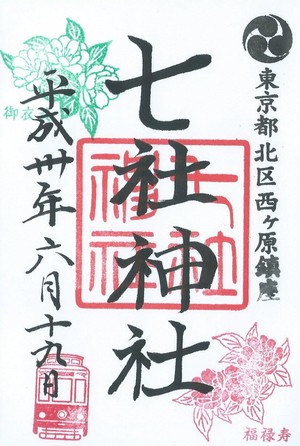 東京都北区西ヶ原鎮座
七社神社
平成卅年六月十九日
御衣
福禄寿